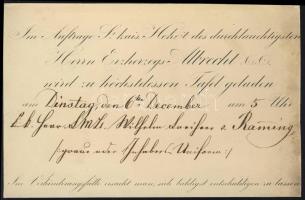 Im Auftrage Sr. kais. Hoheit des durchlauchtigsten
Herrn Erzherzogs Albrecht
wird zu höchstdessen Tafel geladen
am Dinstag, den 6ten December um 5 Uhr
Herr F.M.L. Wilhelm Freiherr v Ramming
/:graue oder Inhabers Uniform:/
Im Verhinderungsfalle ersucht man, sich baldigst entschuldigen zu lassen.